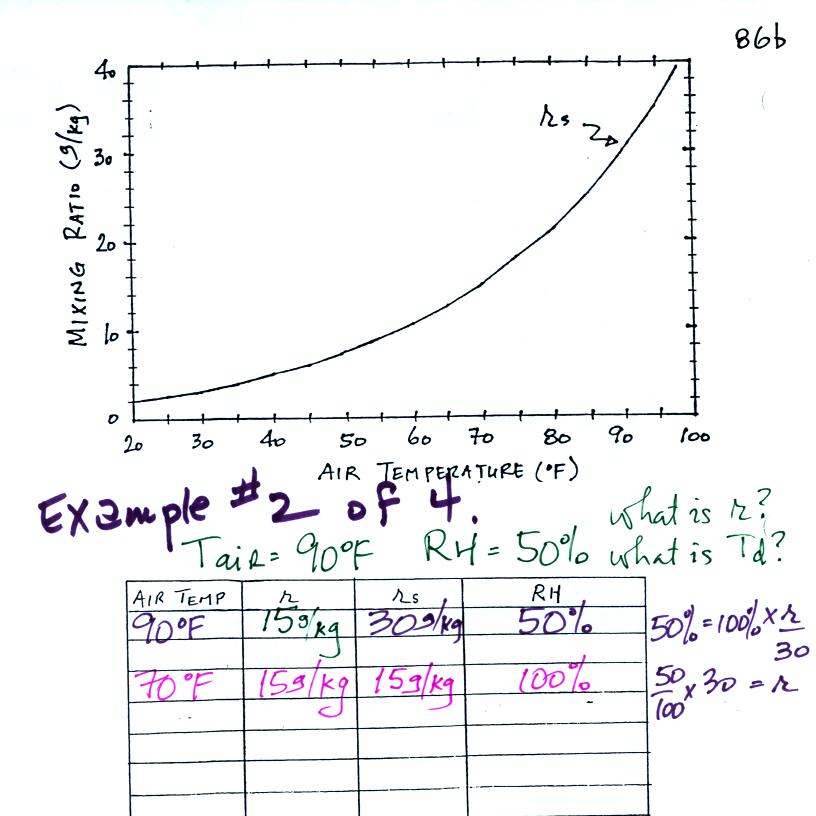 86b
40
30
20
10
0
MIXING RATIO (g/kg)
rs
20 30 40 50 60 70 80 90 100
AIR TEMPERATURE (°F)
Example #2 of 4.
what is r?
Tair = 90°F RH = 50% what is Td?
AIR TEMP r rs RH
90°F 15g/kg 30g/kg 50%
50% = 100% × r/30
70°F 15g/kg 15g/kg 100%
50/100 × 30 = r